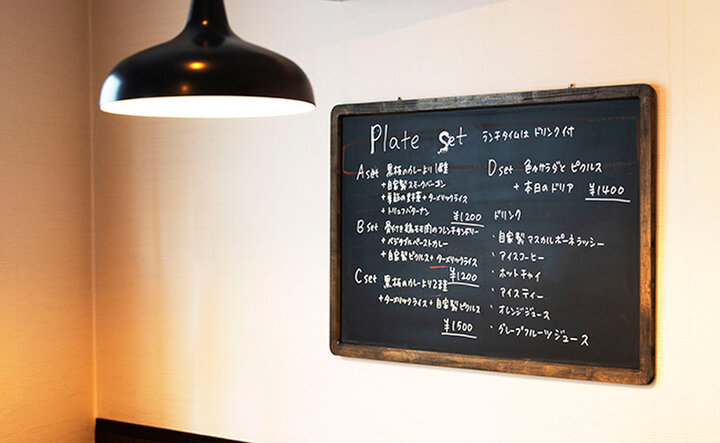 Plate Set ランチタイムは ドリンク付
A set 黒板のカレーより1種
+自家製スモークベーコン
+季節の野菜+ターメリックライス
+トリュフバターナン
¥1200
B set 骨付き鶏もも肉のフレンチタンドリー
+ベジタブルペーストカレー
+自家製ピクルス+ターメリックライス
¥1200
C set 黒板のカレーより2種
+ターメリックライス+自家製ピクルス
¥1500
D set 色々サラダと ピクルス
+本日のドリア ¥1400
ドリンク
・自家製 マスカルポーネラッシー
・アイスコーヒー
・ホットチャイ
・アイスティー
・オレンジジュース
・グレープフルーツジュース